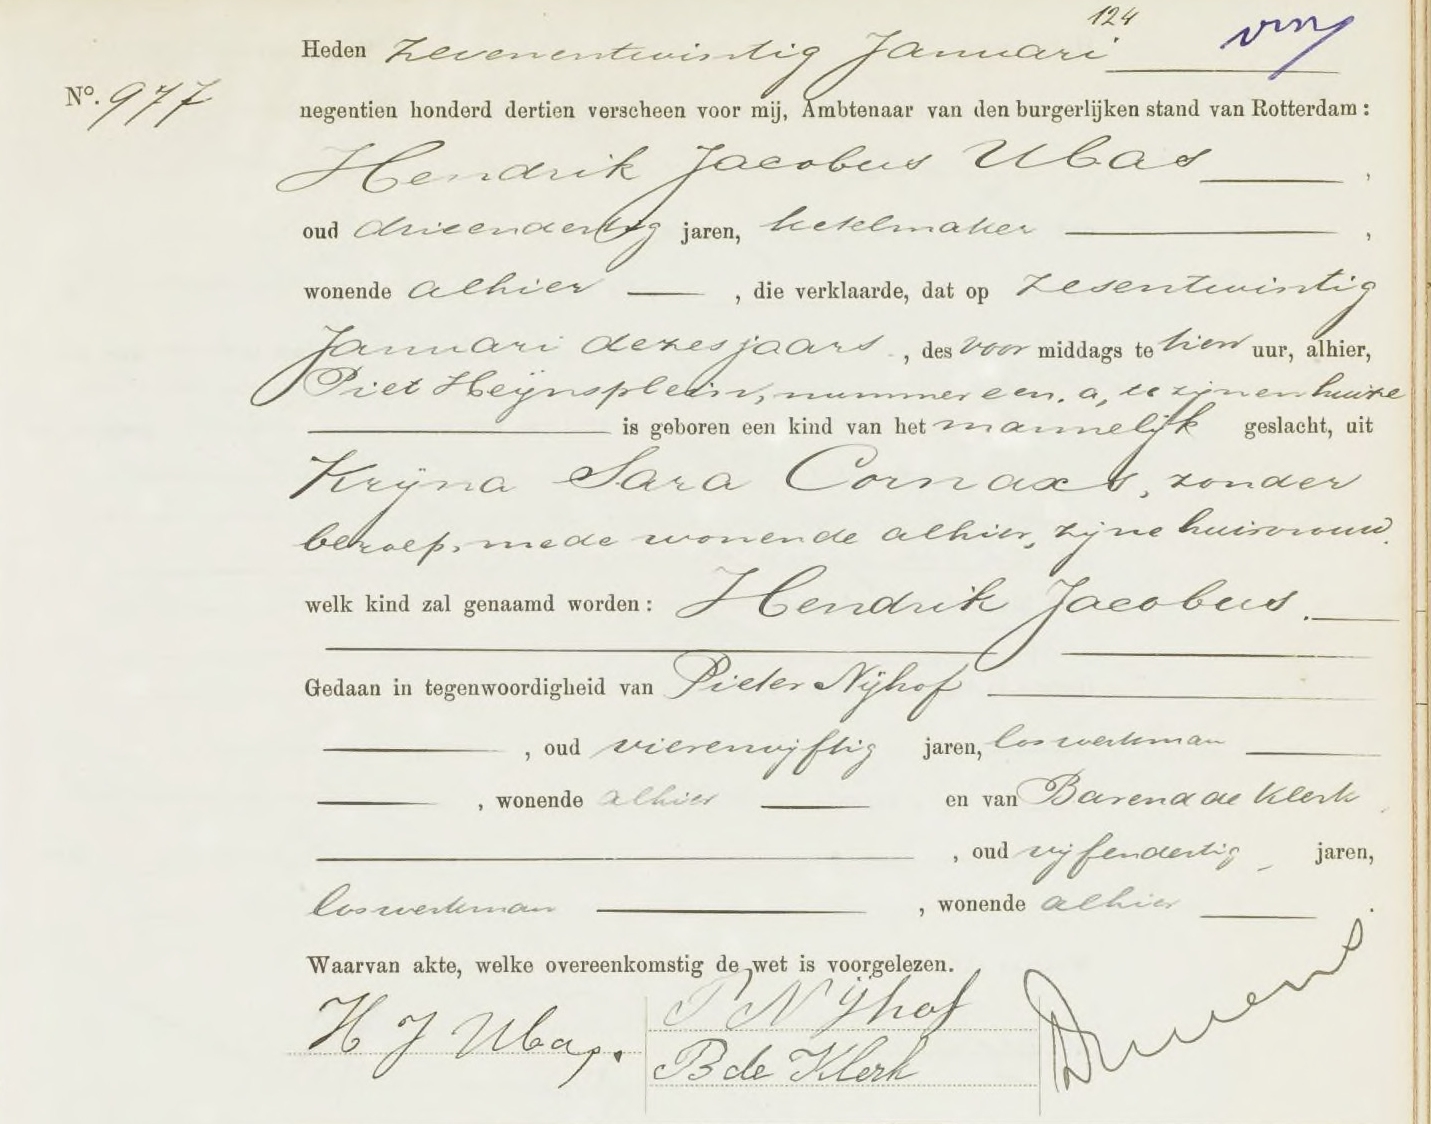 124
Heden zevenentwintig Januari
No. 977
negentien honderd dertien verscheen voor mij, Ambtenaar van den burgerlijken stand van Rotterdam :
Hendrik Jacobus Ubas ,
oud drieendertig jaren, ketelmaker ,
wonende alhier , die verklaarde, dat op zesentwintig
Januari dezes jaars , des voor middags te tien uur, alhier,
Piet Heijnsplein, nummer een. a, te zijnen huize
is geboren een kind van het mannelijk geslacht, uit
Krijna Sara Cornaxs, zonder
beroep, mede wonende alhier, zijne huisvrouw.
welk kind zal genaamd worden : Hendrik Jacobus.
Gedaan in tegenwoordigheid van Pieter Nijhof
, oud vierenvijftig jaren, loswerkman
, wonende alhier en van Barend de Klerk
, oud vijfendertig jaren,
loswerkman , wonende alhier .
Waarvan akte, welke overeenkomstig de wet is voorgelezen.
H J Ubas. P Nijhof
B de Klerk